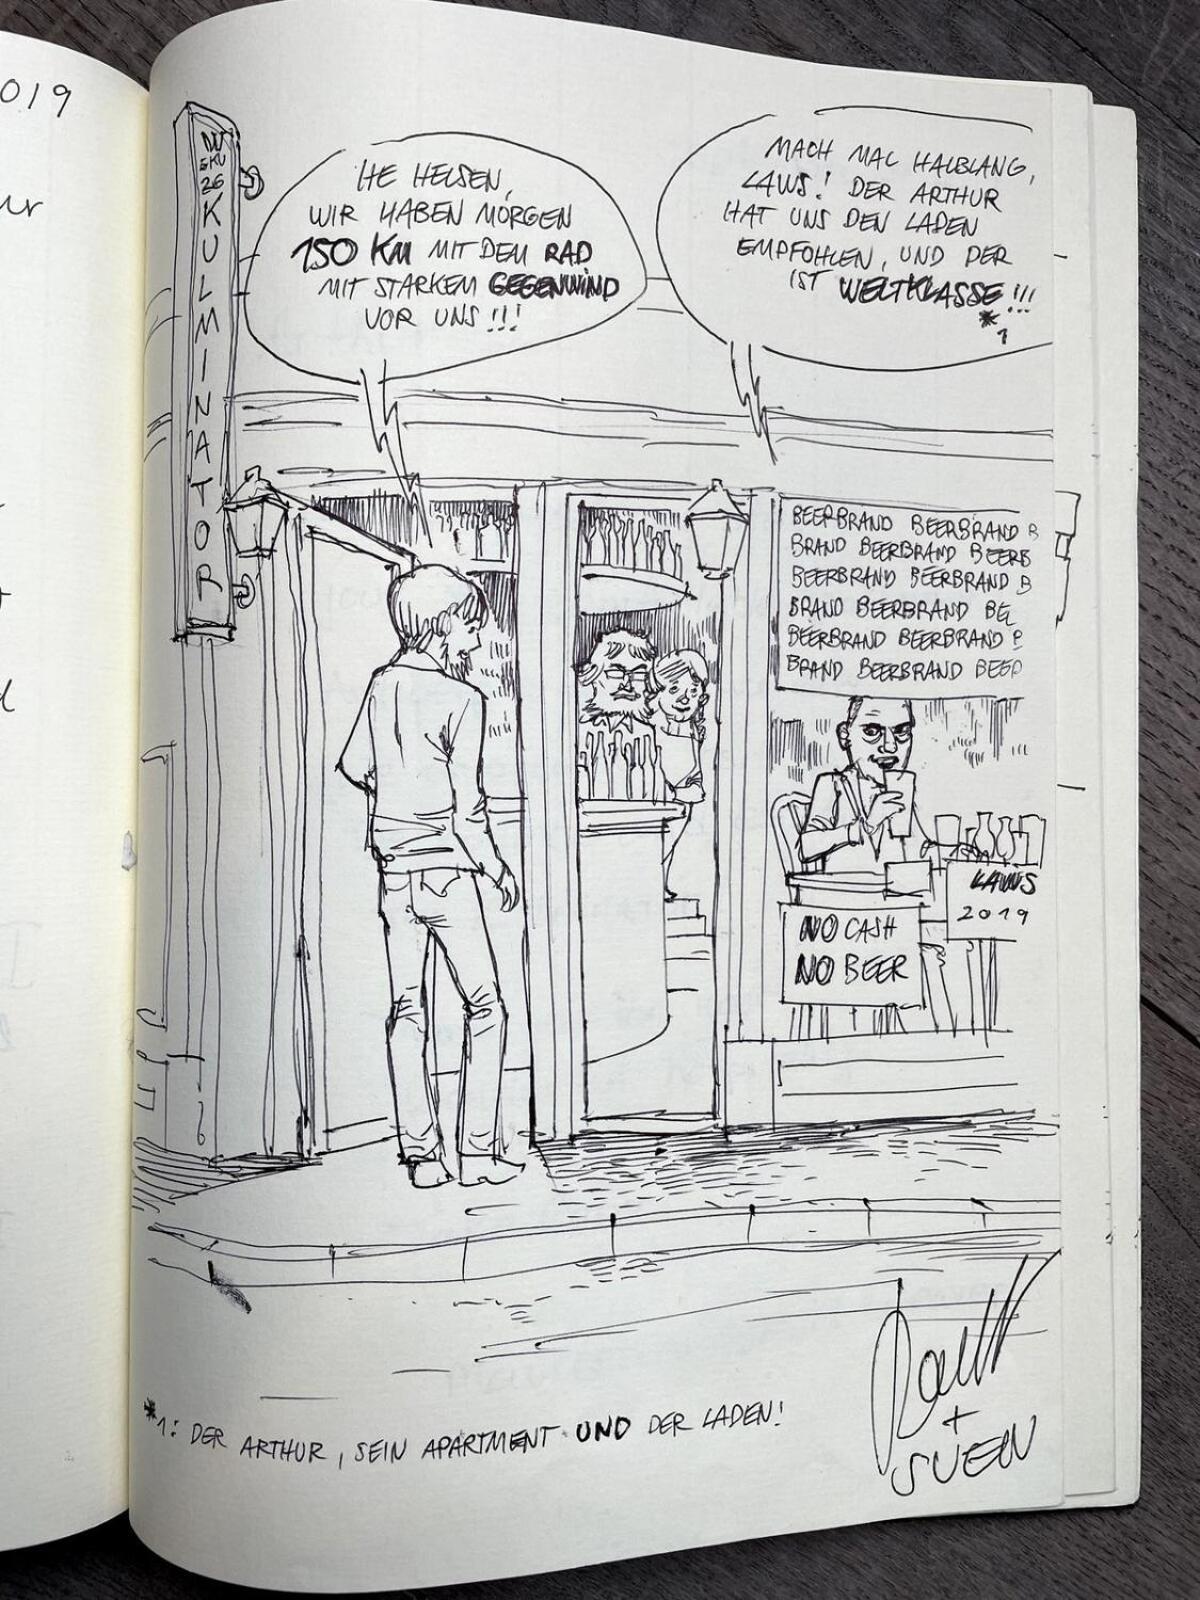 019
KULMINATOR
HE HELSEN,
WIR HABEN MORGEN
150 KM MIT DEM RAD
MIT STARKEM GEGENWIND
VOR UNS!!!
MACH MAL HALBLANG,
LAWS! DER ARTHUR
HAT UNS DEN LADEN
EMPFOHLEN, UND DER
IST WELTKLASSE!!!
*1
BEERBRAND BEERBRAND B
BRAND BEERBRAND BEERB
BEERBRAND BEERBRAND B
BRAND BEERBRAND BE
BEERBRAND BEERBRAND B
BRAND BEERBRAND BEER
LAWS
2019
NO CASH
NO BEER
*1: DER ARTHUR, SEIN APARTMENT UND DER LADEN!
+
SVEN